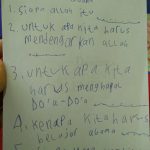 1. Siapa allah itu
2. untuk apa kita harus
mendengarkan allah
3. untuk apa kita
harus menghapal
Do'a-Do'a
4. kenapa kita harus
belajar agama
5.